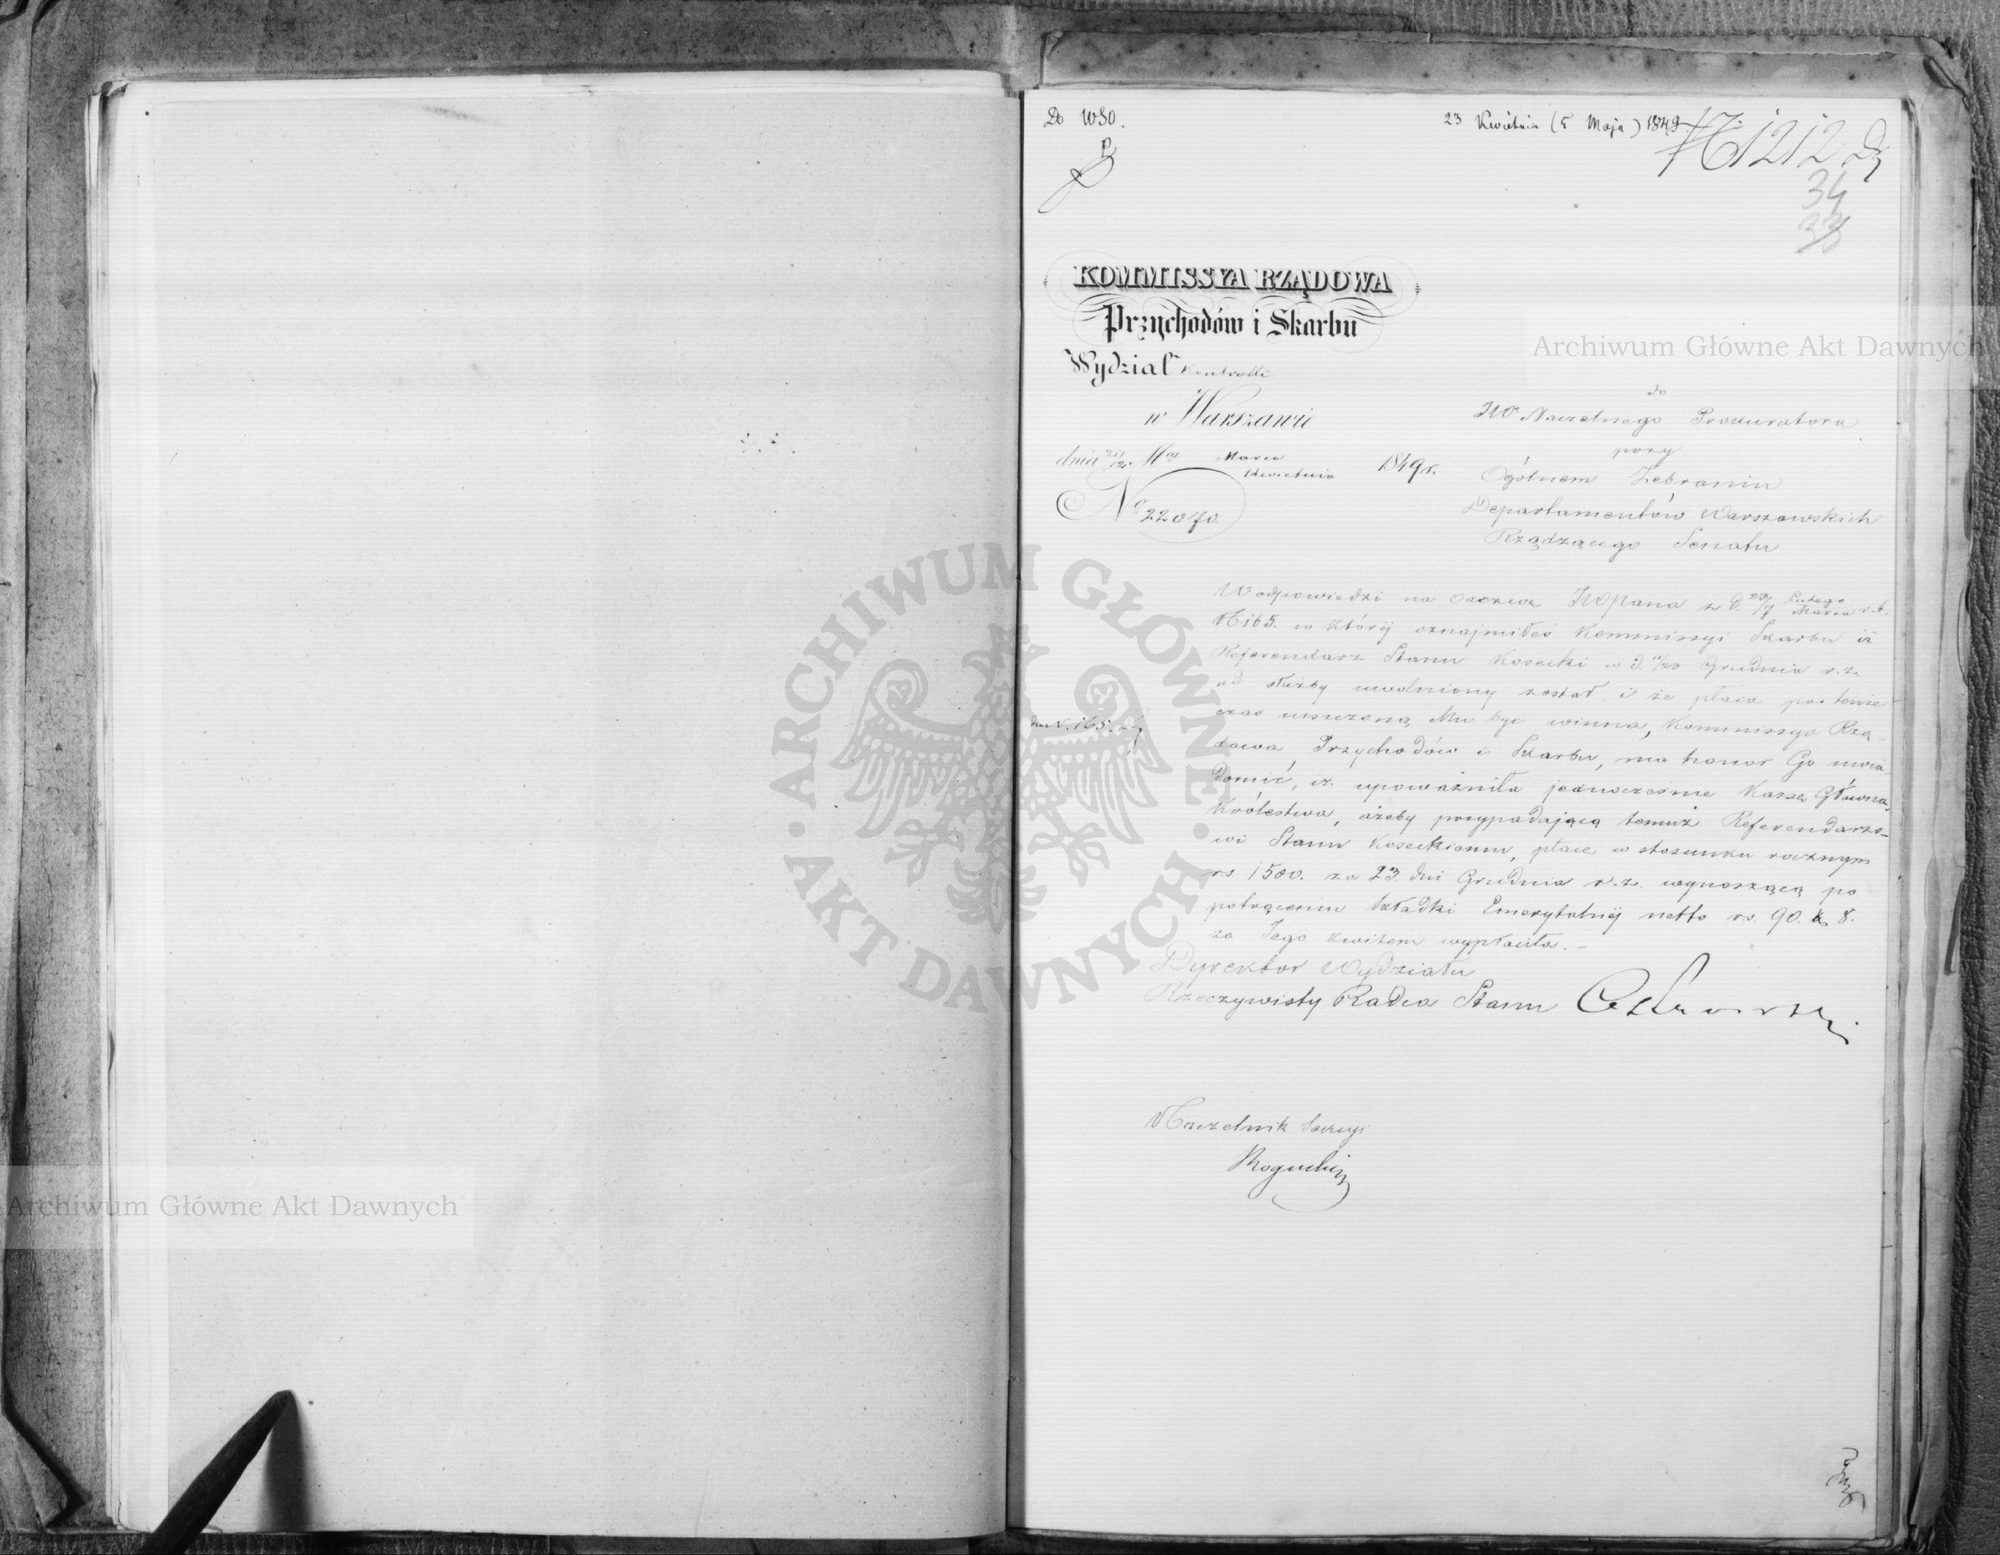 Do WSO.
23 Kwietnia (5 Maja) 1849.
N 1212
34
33
KOMMISSYA RZĄDOWA
Przychodów i Skarbu
Wydział Kontrolli
w Warszawie
dnia 21/12 Mca Marca Kwietnia 1849 r.
No 22070
do
JWo Naczelnego Prokuratora
przy
Ogólnem Zebraniu
Departamentów Warszawskich
Rządzącego Senatu
W odpowiedzi na odezwę JWPana z d. 23/7 Lutego Marca r. b.
N 165. w którey oznajmiłeś Kommissyi Skarbu iż
Referendarz Stanu Kosecki w d. 11/23 Grudnia r. z.
od służby uwolniony został i że płaca po tenże
czas uiszczoną Mu być winna, Kommissya Rzą-
dowa Przychodów i Skarbu, ma honor Go uwia-
domić, iż upoważniła jednocześnie Kassę Główną
Królestwa, ażeby przypadającą temuż Referendarzo-
wi Stanu Koseckiemu, płacę w stosunku rocznym
rs 1500. za 23 dni Grudnia r. z. wynoszącą po
potrąceniu Składki Emerytalnéj netto rs. 90. k 8.
za Jego kwitem wypłaciła. –
N. 165.
Dyrektor Wydziału
Rzeczywisty Radca Stanu
Naczelnik Sekcyi
ARCHIWUM GŁÓWNE
AKT DAWNYCH
Archiwum Główne Akt Dawnych
Archiwum Główne Akt Dawnych